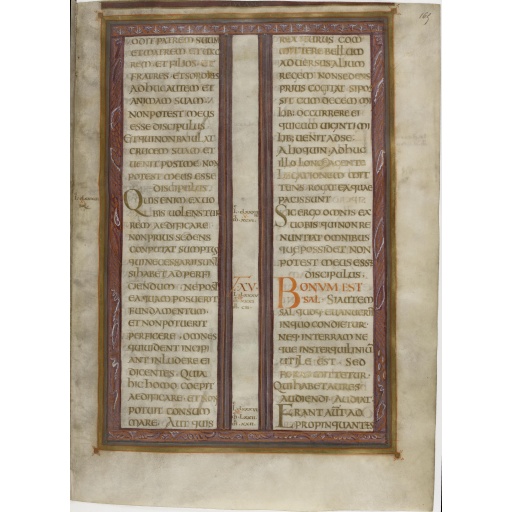 ODIT PATREM SUUM
ET MATREM ET UXO
REM ET FILIOS ET
FRATRES ET SORORES
ADHUC AUTEM ET
ANIMAM SUAM
NON POTEST MEUS
ESSE DISCIPULUS
ET QUI NON BAIULAT
CRUCEM SUAM ET
UENIT POST ME NON
POTEST MEUS ESSE
DISCIPULUS
QUIS ENIM EX UO
BIS UOLENS TUR
REM AEDIFICARE
NON PRIUS SEDENS
CONPUTAT SUMPTUS
QUI NECESSARII SUNT
SI HABET AD PERFI
CIENDUM NE POST
EA QUAM POSUERIT
FUNDAMENTUM
ET NON POTUERIT
PERFICERE OMNES
QUI UIDENT INCIPI
ANT INLUDERE EI
DICENTES QUIA
HIC HOMO COEPIT
AEDIFICARE ET NON
POTUIT CONSUM
MARE AUT QUIS
REX ITURUS COM
MITTERE BELLUM
ADUERSUS ALIUM
REGEM NON SEDENS
PRIUS COGITAT SI POS
SIT CUM DECEM MI
LIB OCCURRERE EI
QUI CUM UIGINTI MI
LIB UENIT AD SE
ALIOQUIN ADHUC
ILLO LONGE AGENTE
LEGATIONEM MIT
TENS ROGAT EA QUAE
PACIS SUNT
SIC ERGO OMNIS EX
UOBIS QUI NON RE
NUNTIAT OMNIBUS
QUE POSSIDET NON
POTEST MEUS ESSE
DISCIPULUS
BONUM EST
SAL SI AUTEM
SAL QUOQ EUANUERIT
IN QUO CONDIETUR
NEQ IN TERRAM NE
QUE IN STERQUILINIU
UTILE EST SED
FORAS MITTETUR
QUI HABET AURES
AUDIENDI AUDIAT
ERANT AUT AD
EPROPINQUANTES